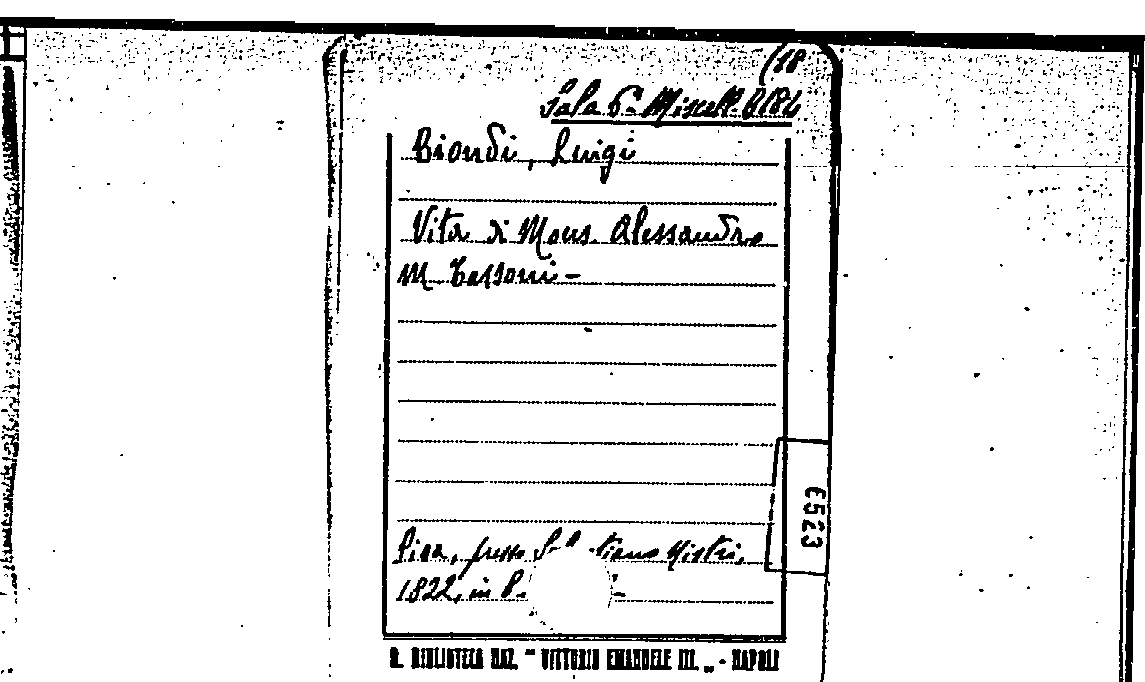 (18
Sala 6ª Miscell. B184
Biondi, Luigi
Vita di Mons. Alessandro
M. Tassoni -
Pisa, presso Seb tiano Nistri,
1822, in 8.
6523
R. BIBLIOTECA NAZ. " VITTORIO EMANUELE III. „ - NAPOLI